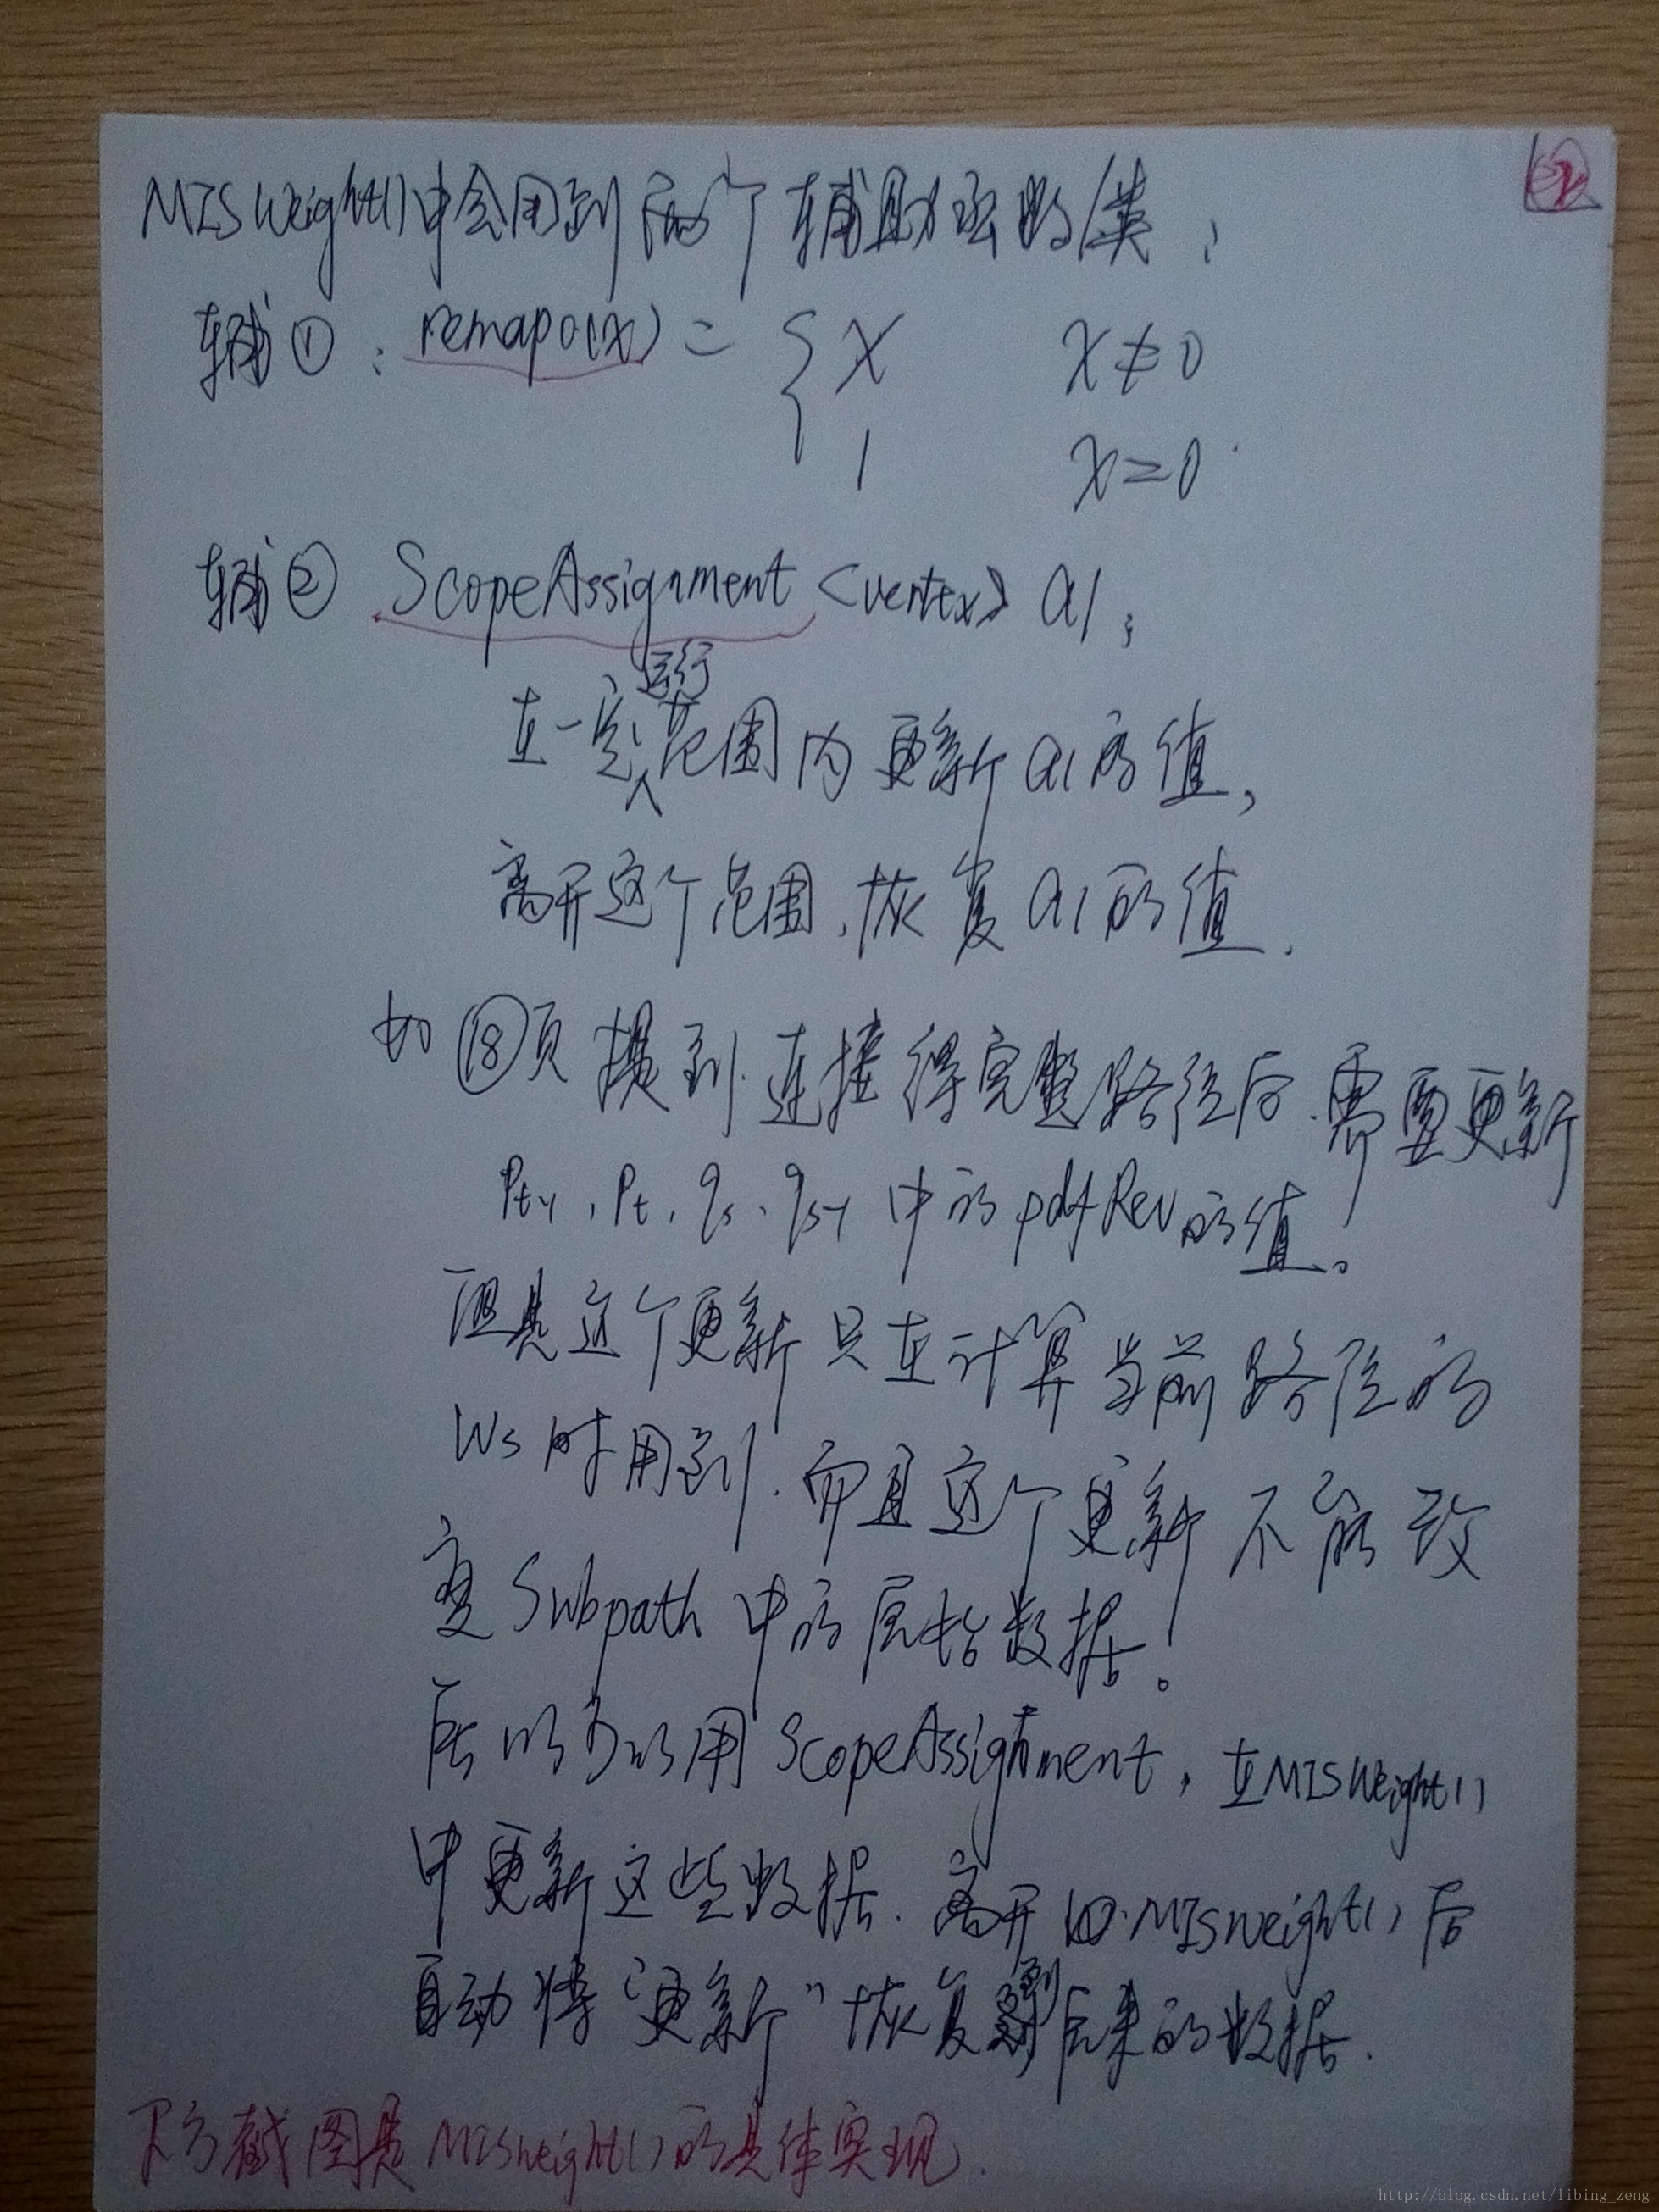 MISWeight()中会用到两个辅助函数/类:
辅①: remap0(x) = { x x≠0
1 x=0
辅② ScopeAssignment <vertex> a1;
运行
在一定范围内更新a1的值,
离开这个范围,恢复a1的值.
如⑱页提到.连接得完整路径后.需要更新
Pt-1, Pt, qs, qs-1 中的pdfRev的值。
但是这个更新只在计算当前路径的
Ws时用到.而且这个更新不能改
变Subpath中的原始数据!
所以可以用ScopeAssignment, 在MISWeight()
中更新这些数据.离开MISWeight()后
自动将“更新”恢复到原来的数据.
下方截图是MISWeight()的具体实现.
http://blog.csdn.net/libing_zeng